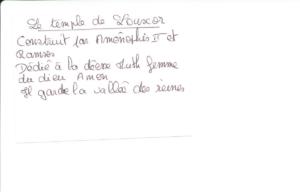 Le temple de Louxor
Construit par Aménophis II et
Ramsès
Dédié à la déesse Muth femme
du dieu Amon
Il garde la vallée des reines